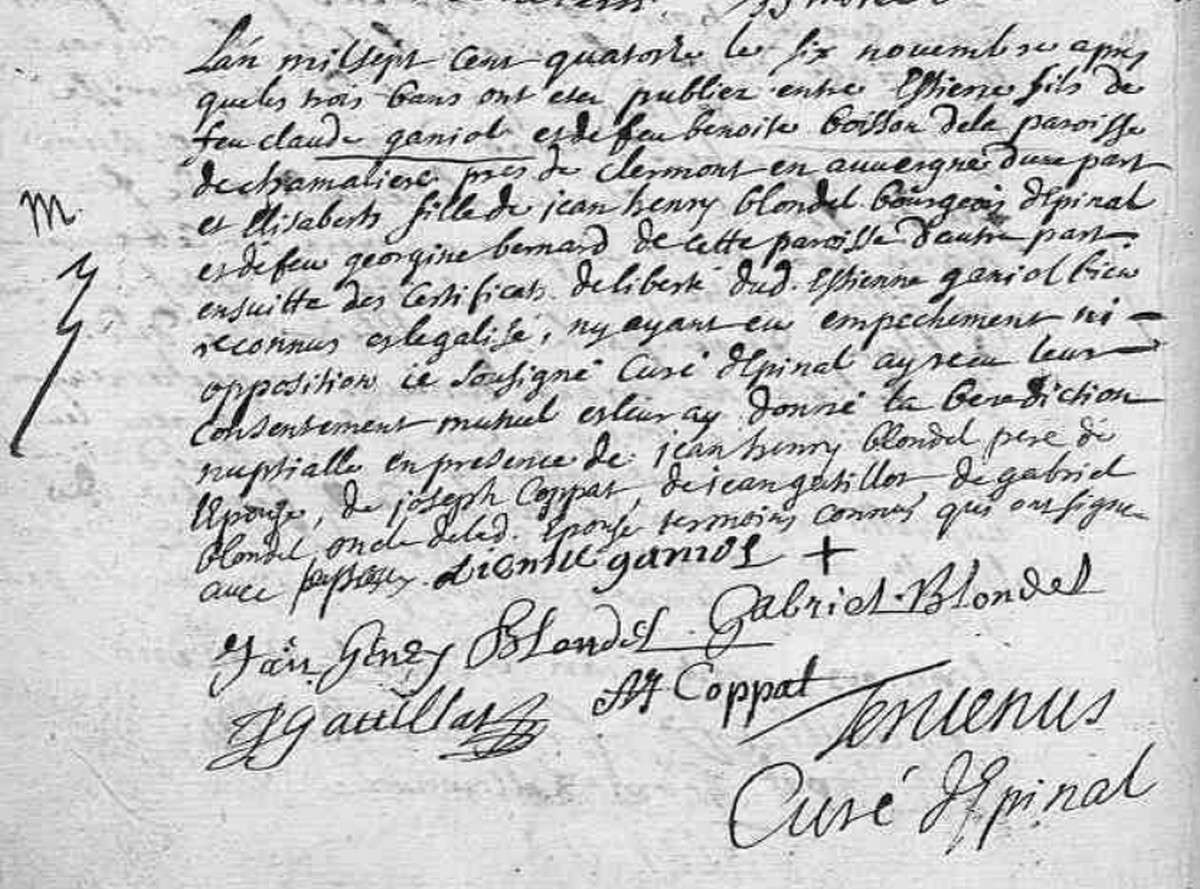 L'an mil sept cent quatorse le six novembre apres
que les trois bans ont eter publiez entre Estienne fils de
feu claude ganiol et de feu benoite boisson de la paroisse
de chamaliere pres de Clermont en auvergne d'une part
et Elisabeth fille de jean henry blondel bourgeois d'Epinal
et de feu georgine bernard de cette paroisse d'autre part
M.
ensuitte des Certificats de liberté dud. Estienne ganiol bien
reconnus et legalisé, ny ayant eu empechement ni
opposition ie sousigné Curé d'Epinal ay receu leur
Consentement mutuel et leur ay donné la benediction
nuptialle en presence de jean henry blondel pere de
l'Epouse, de joseph Coppat, de jean gatillot de gabriel
blondel oncle delad. Epouse termoins connus qui ont signe
avec etienne ganiol +
Jean Henry Blondel Gabriel Blondel
gatillat Coppat
Curé d'Epinal